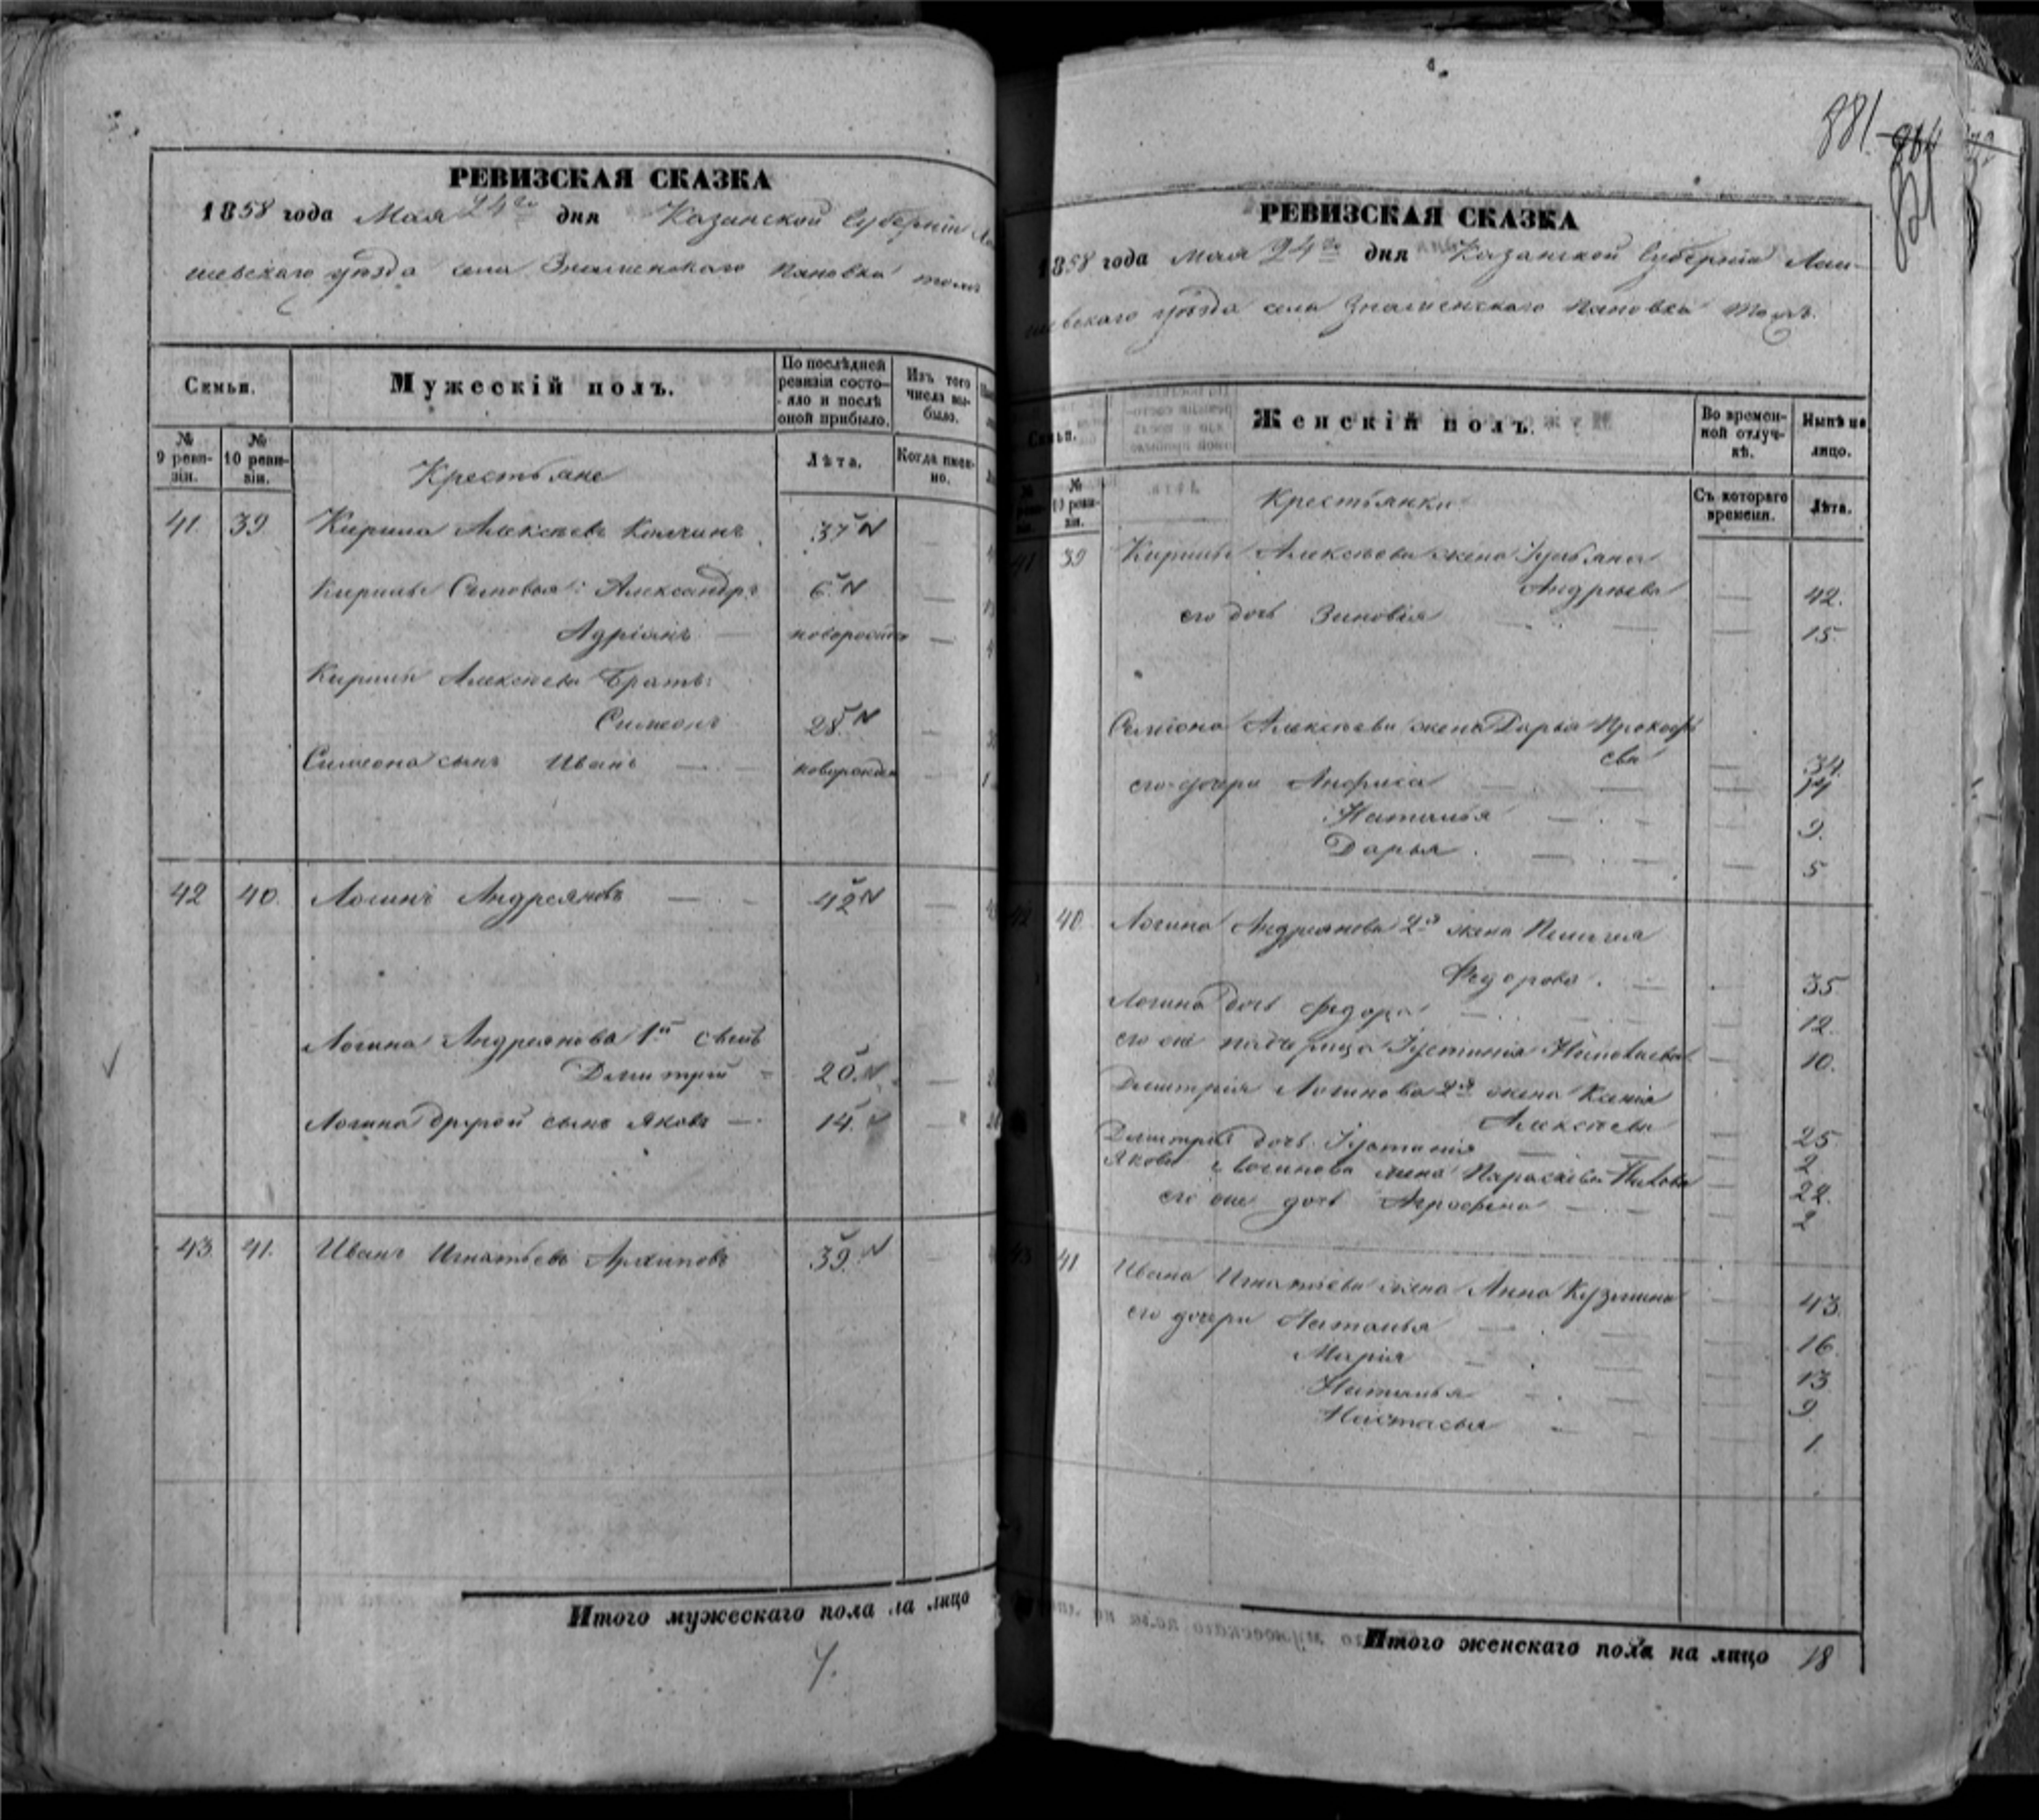 РЕВИЗСКАЯ СКАЗКА
1858 года Мая 24го дня Казанской Губерніи
шевскаго уѣзда села Знаменскаго Пановка тожъ
Семьи.
Мужескій полъ.
По послѣдней ревизіи состо-
яло и послѣ
оной прибыло.
Изъ того
числа вы-
было.
№
9 реви-
зіи.
№
10 реви-
зіи.
Крестьяне
Лѣта.
Когда имен-
но.
41. 39. Кирила Алексѣевъ 37
Кирилы Сыновья: Александръ 6
Адріянъ — новорожден
Кирилы Алексѣева Братъ:
Симеонъ 28
Симеона сынъ Иванъ — новорожден
42 40. Логинъ Андреяновъ — 42
Логина Андреянова 1й сынъ
Дмитрій 20
Логина другой сынъ Яковъ — 14
43 41. Иванъ Игнатьевъ Архиповъ 39
Итого мужескаго пола на лицо
7.
881
РЕВИЗСКАЯ СКАЗКА
1858 года Мая 24го дня Казанской Губерніи Лаи-
шевскаго уѣзда села Знаменскаго Пановка тожъ.
Семьи.
Женскій полъ.
Во времен-
ной отлуч-
кѣ.
Нынѣ на
лицо.
№
10 реви-
зіи.
Крестьянки
Съ котораго
времени.
Лѣта.
41 39 Кирилы Алексѣева жена Ульяна
Андреева 42.
его дочь Зиновія 15.
Симіона Алексѣева жена Дарья Прокофь
ева 34.
его дочери Анфиса 14
Наталья 9.
Дарья 5
42 40 Логина Андреянова 2я жена Пелагея
Федорова 35
Логина дочь Федора 12.
его же падчерица Устинія Николаева 10.
Дмитрія Логинова 2я жена Ксенія
Алексѣева 25
Дмитрія дочь Устинія 2
Якова Логинова жена Парасковья 22.
его же дочь Агрофена 2
43 41 Ивана Игнатьева жена Анна Кузмина 43.
его дочери Наталья 16.
Марія 13
Наталья 9
Настасья 1.
Итого женскаго пола на лицо 18